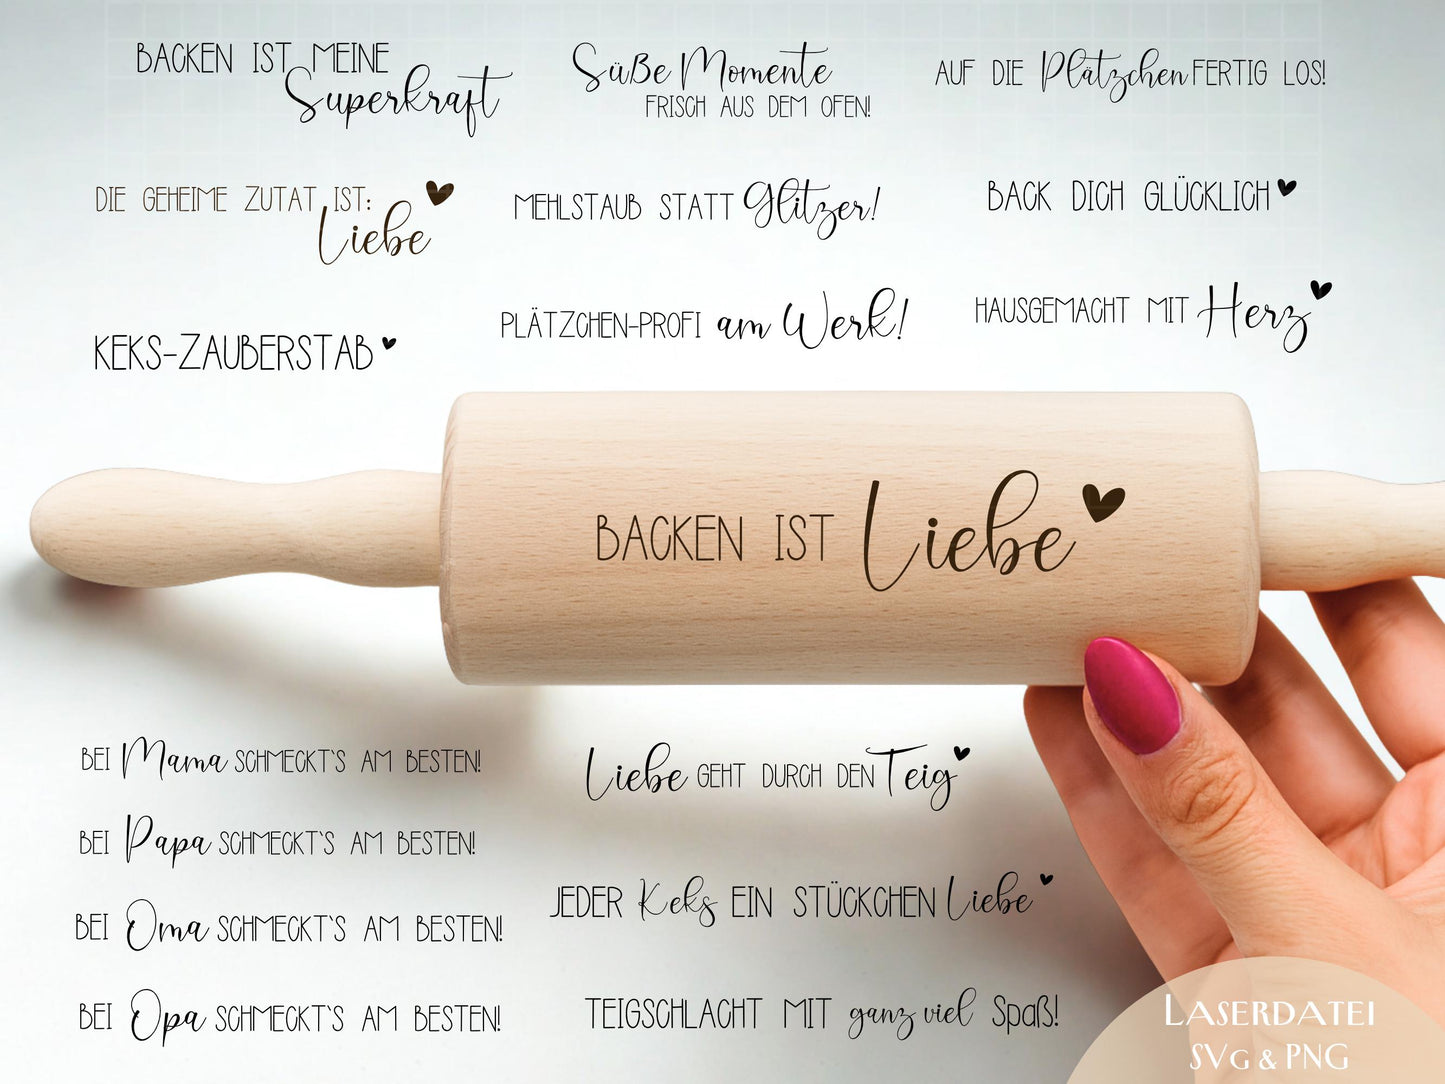 BACKEN IST MEINE
Superkraft
Süße Momente
FRISCH AUS DEM OFEN!
AUF DIE Plätzchen FERTIG LOS!
DIE GEHEIME ZUTAT IST:
Liebe
MEHLSTAUB STATT Glitzer!
BACK DICH GLÜCKLICH
KEKS-ZAUBERSTAB
PLÄTZCHEN-PROFI am Werk!
HAUSGEMACHT MIT Herz
BACKEN IST Liebe
BEI Mama SCHMECKT`S AM BESTEN!
BEI Papa SCHMECKT`S AM BESTEN!
BEI Oma SCHMECKT`S AM BESTEN!
BEI Opa SCHMECKT`S AM BESTEN!
Liebe GEHT DURCH DEN Teig
JEDER Keks EIN STÜCKCHEN Liebe
TEIGSCHLACHT MIT ganz viel Spaß!
LASERDATEI
SVG & PNG